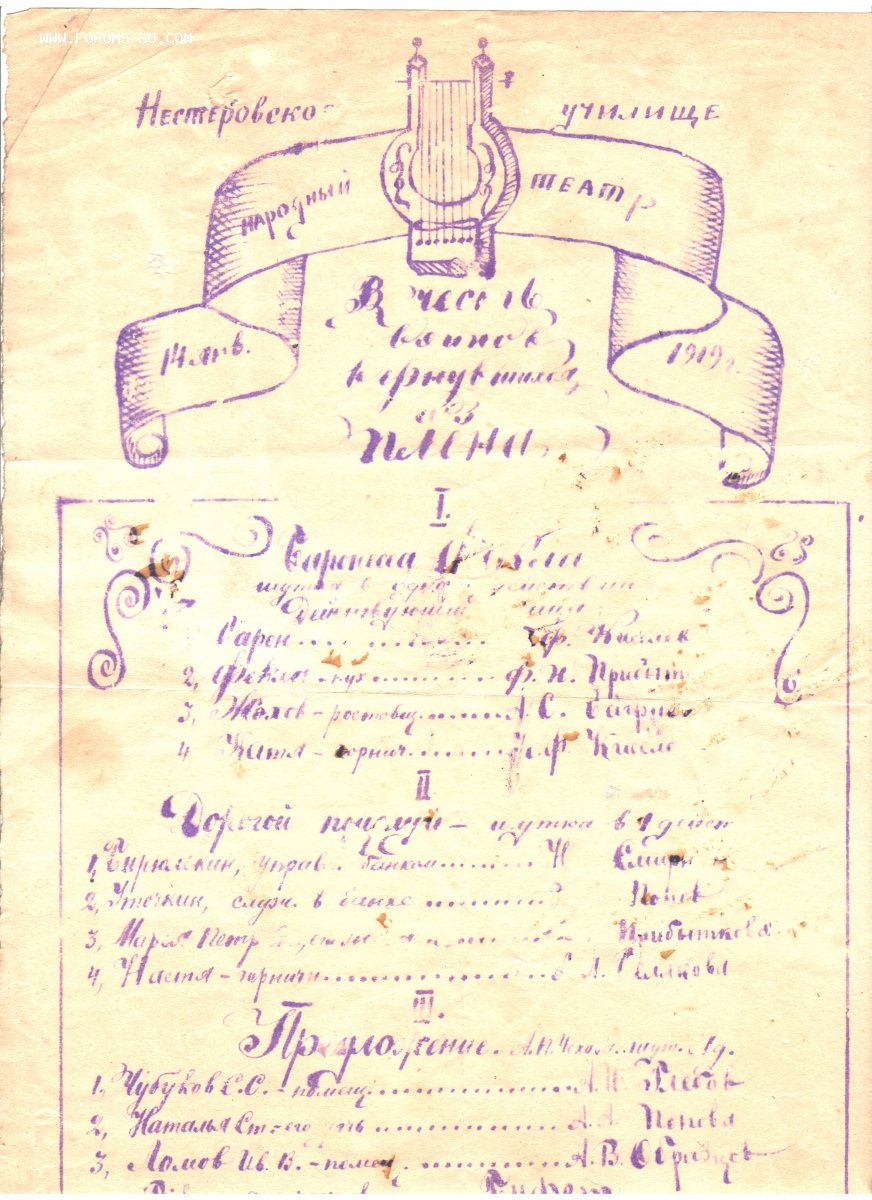 WWW.FORUMS-SU.COM
Нестеровское училище
народный театр
14 янв. 1919 г.
В честь
воинов
вернувшихся
из
плена
I.
шутка в одно действии
Действующие лица
Барон Ф. Киселев
2, Фекла - кух Ф. И. Прибыт
3, Жохов - ростовщ А. С.
4 Катя - горнич Ф. Кисел
II
Дорогой поцелуй - шутка в 1 дейст
1, Бирюлькин, управ. банком Н Смирн
2, Уточкин, служ. в банке Попов
3, Марья Петр Прибыткова
4, Настя - горнич А.
III.
Предложение. А.П. Чехова. шут. 1 д.
1, Чубуков С.С. - помещ А. И. Глебов
2, Наталья Ст - его дочь А. А. Попова
3, Ломов Ив. В. - помещ А. В. Образцов